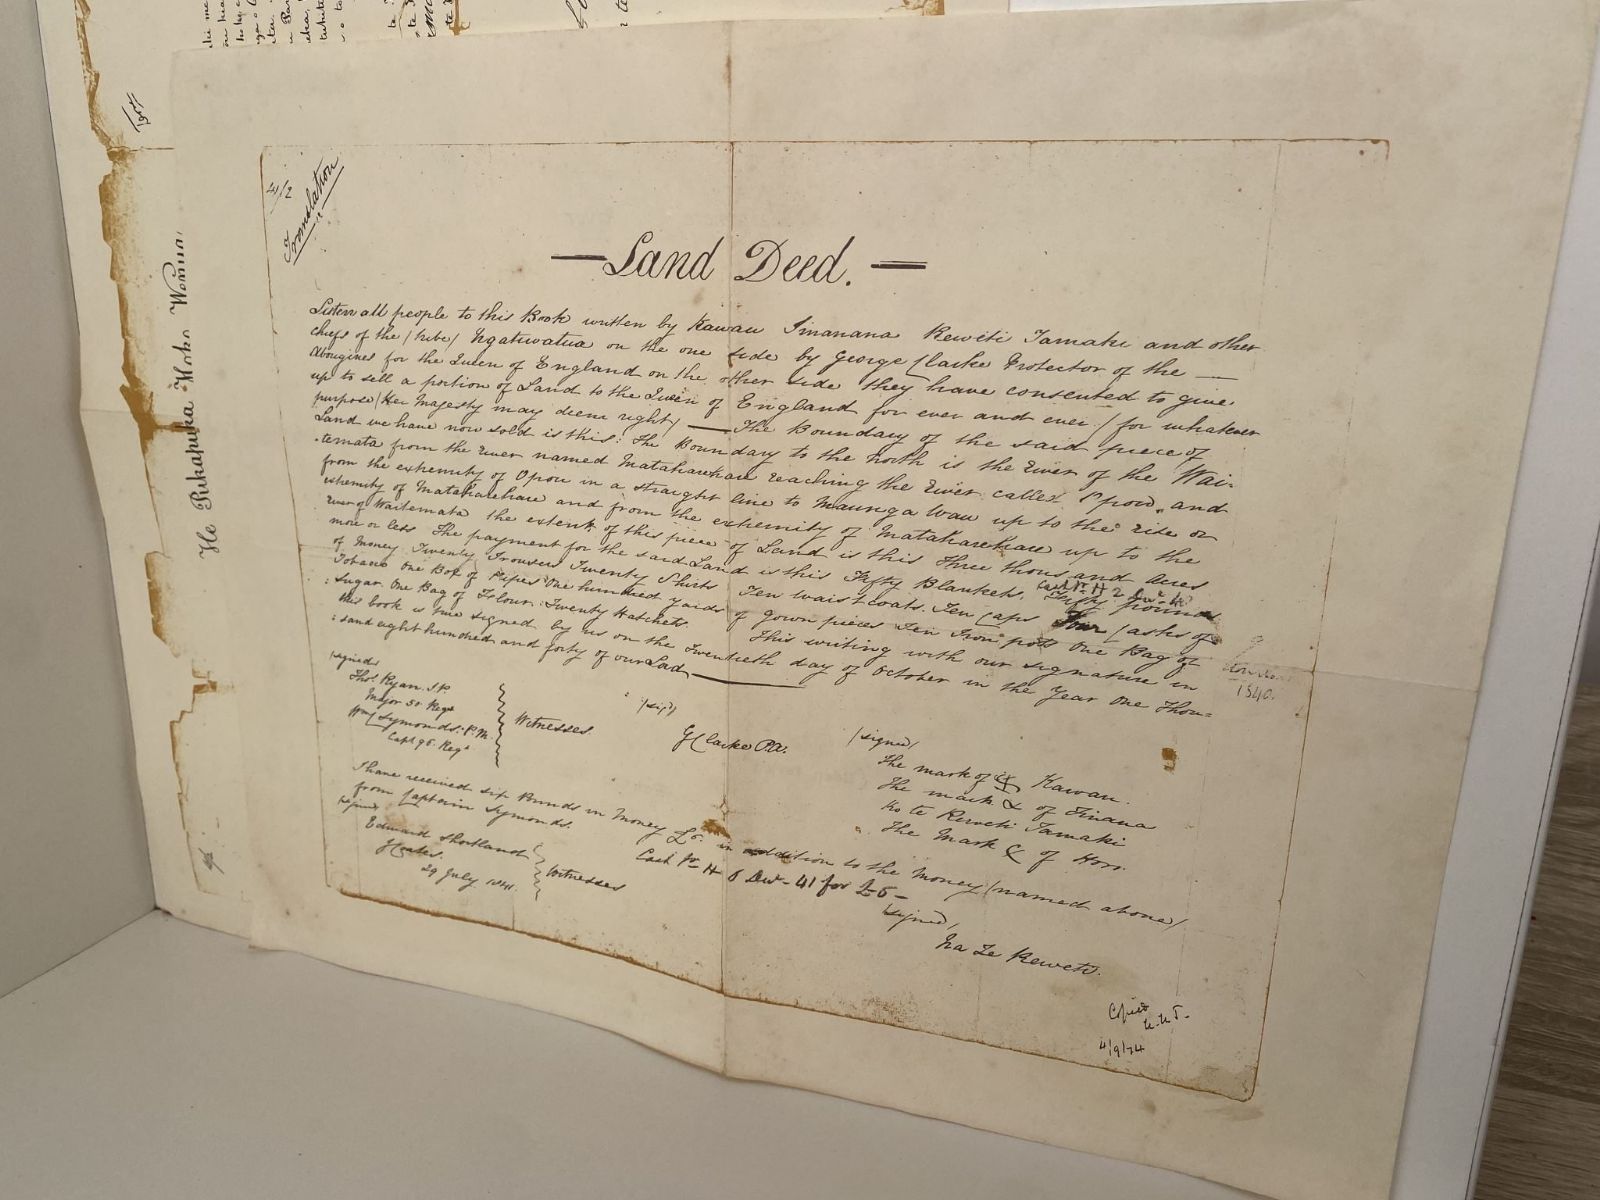 4/2
Translation
— Land Deed. —
Listen all people to this Book written by Kawau Tinanana Reweti Tamaki and other
chiefs of the (tribe) Ngatiwatua on the one side by George Clarke Protector of the —
Aborigines for the Queen of England on the other side they have consented to give
up to sell a portion of Land to the Queen of England for ever and ever (for whatever
purpose Her Majesty may deem right) — The Boundary of the said piece of
Land we have now sold is this: The Boundary to the North is the River of the Wai-
-temata from the River named Matakarekare reaching the River called Opou, and
from the extremity of Opou in a straight line to Maunga Wau up to the rise or
extremity of Matakarekare and from the extremity of Matakarekare up to the
River of Waitemata the extent of this piece of Land is this Three thousand Acres
more or less The payment for the said Land is this Fifty Blankets. Fifty pounds
of Money Twenty Trousers Twenty Shirts Ten waistcoats. Ten Caps Four Casks of
Tobacco One Box of Pipes One hundred yards of Gown pieces Ten Iron pots One Bag of
: Sugar. One Bag of Flour. Twenty Hatchets. This writing with our signature in
this book is signed by us on the Twentieth day of October in the Year One Thou=
: sand eight hundred and forty of our Lord —
1840.
(signed)
Thos Ryan J.P.
Major 50 Regt
Wm C Symonds. P.M.
Capt 96. Regt
Witnesses
(sigd)
G Clarke P.A.
(signed)
The mark of Kawau.
The mark of Tinana
Ko te Reweti Tamaki
The Mark of Horo.
I have received six Pounds in money £6. in addition to the money (named above)
from Captain Symonds.
6 Dec - 41 for £6 -
(signed)
Edward Shortland
J Coates.
29 July 1841.
Witnesses
(signed),
Na Te Reweti.
Copied
H.H.T.
4/9/74
He Pukapuka Hoko Wenua